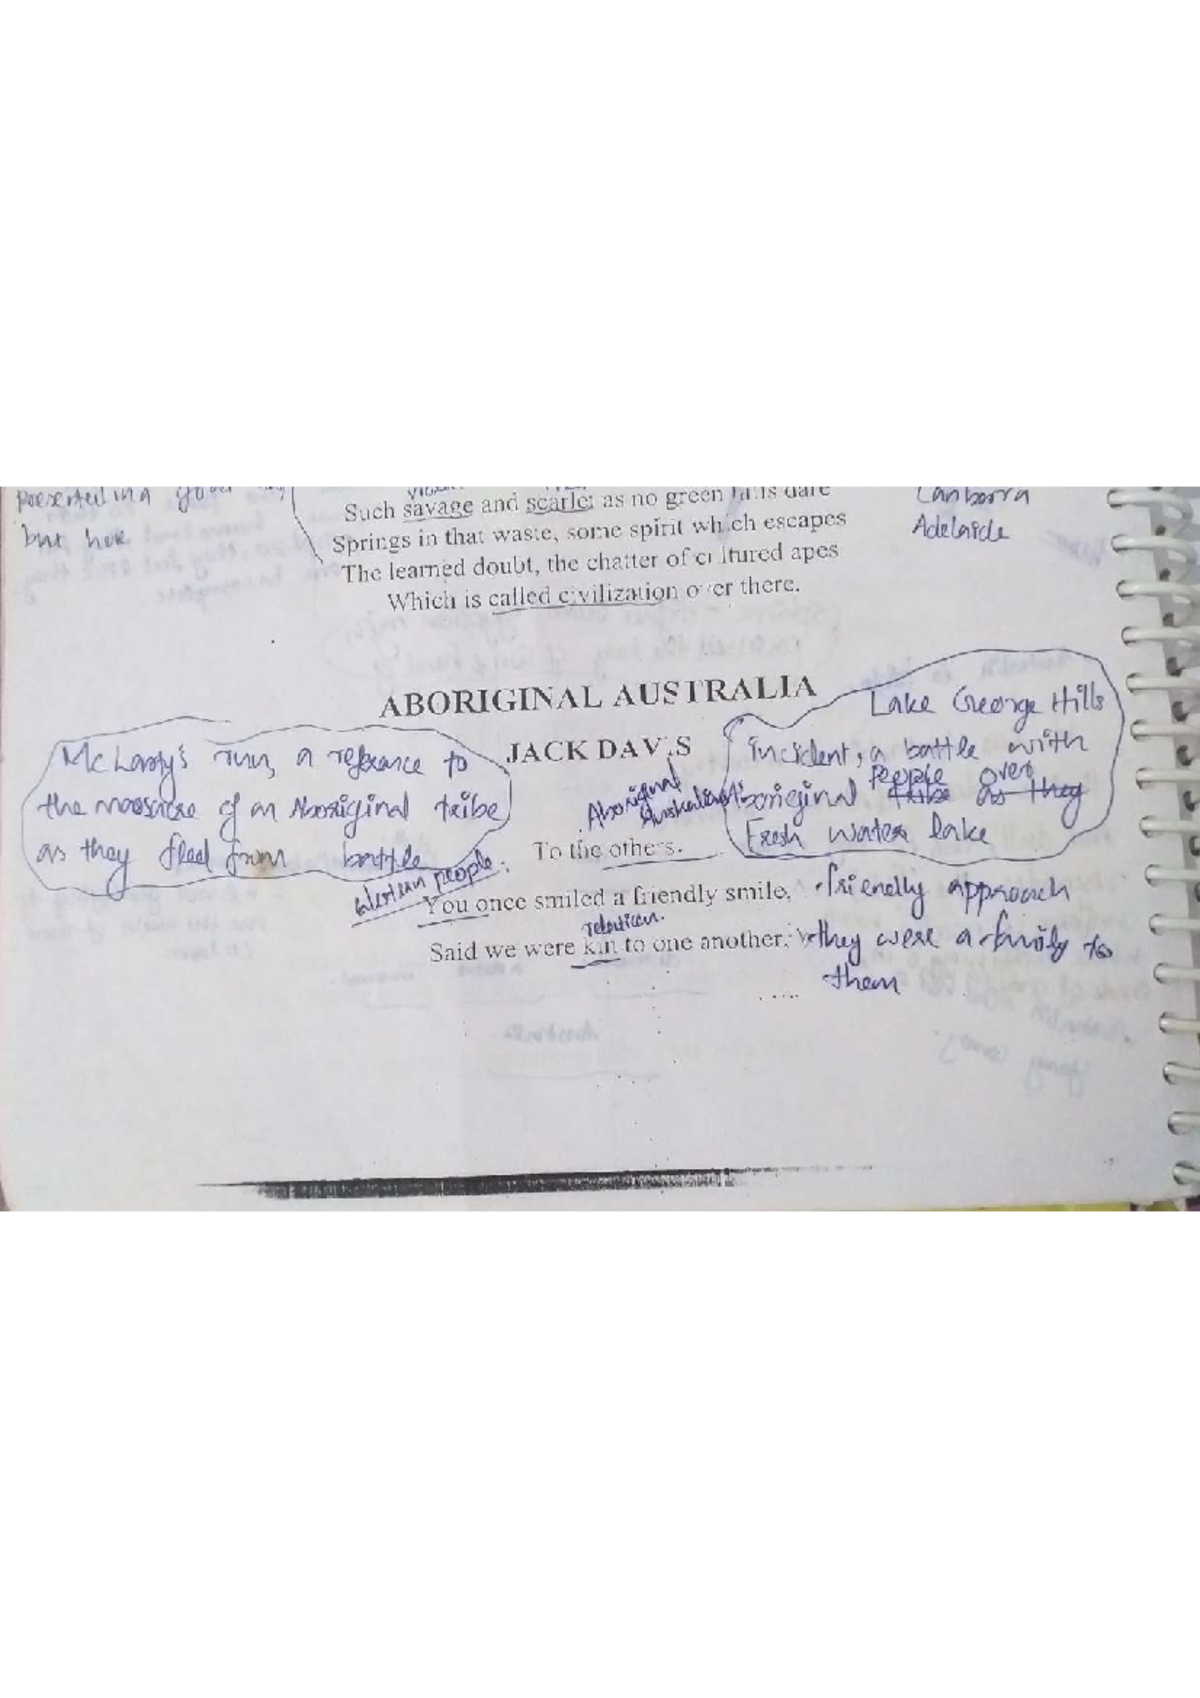 presented in a
but here
Such savage and scarlet as no green hills dare
Springs in that waste, some spirit which escapes
The learned doubt, the chatter of cultured apes
Which is called civilization over there.
Canberra
Adelaide
ABORIGINAL AUSTRALIA
JACK DAVIS
McLarty's run, a reference to
the massacre of an Aboriginal tribe
as they fleed from battle
Lake George Hills
incident, a battle with
Aboriginal people over
tribe as they
Fresh water lake
Aboriginal
Australians
To the others.
western people
You once smiled a friendly smile,
friendly approach
relation
Said we were kin to one another,
they were a family to
them